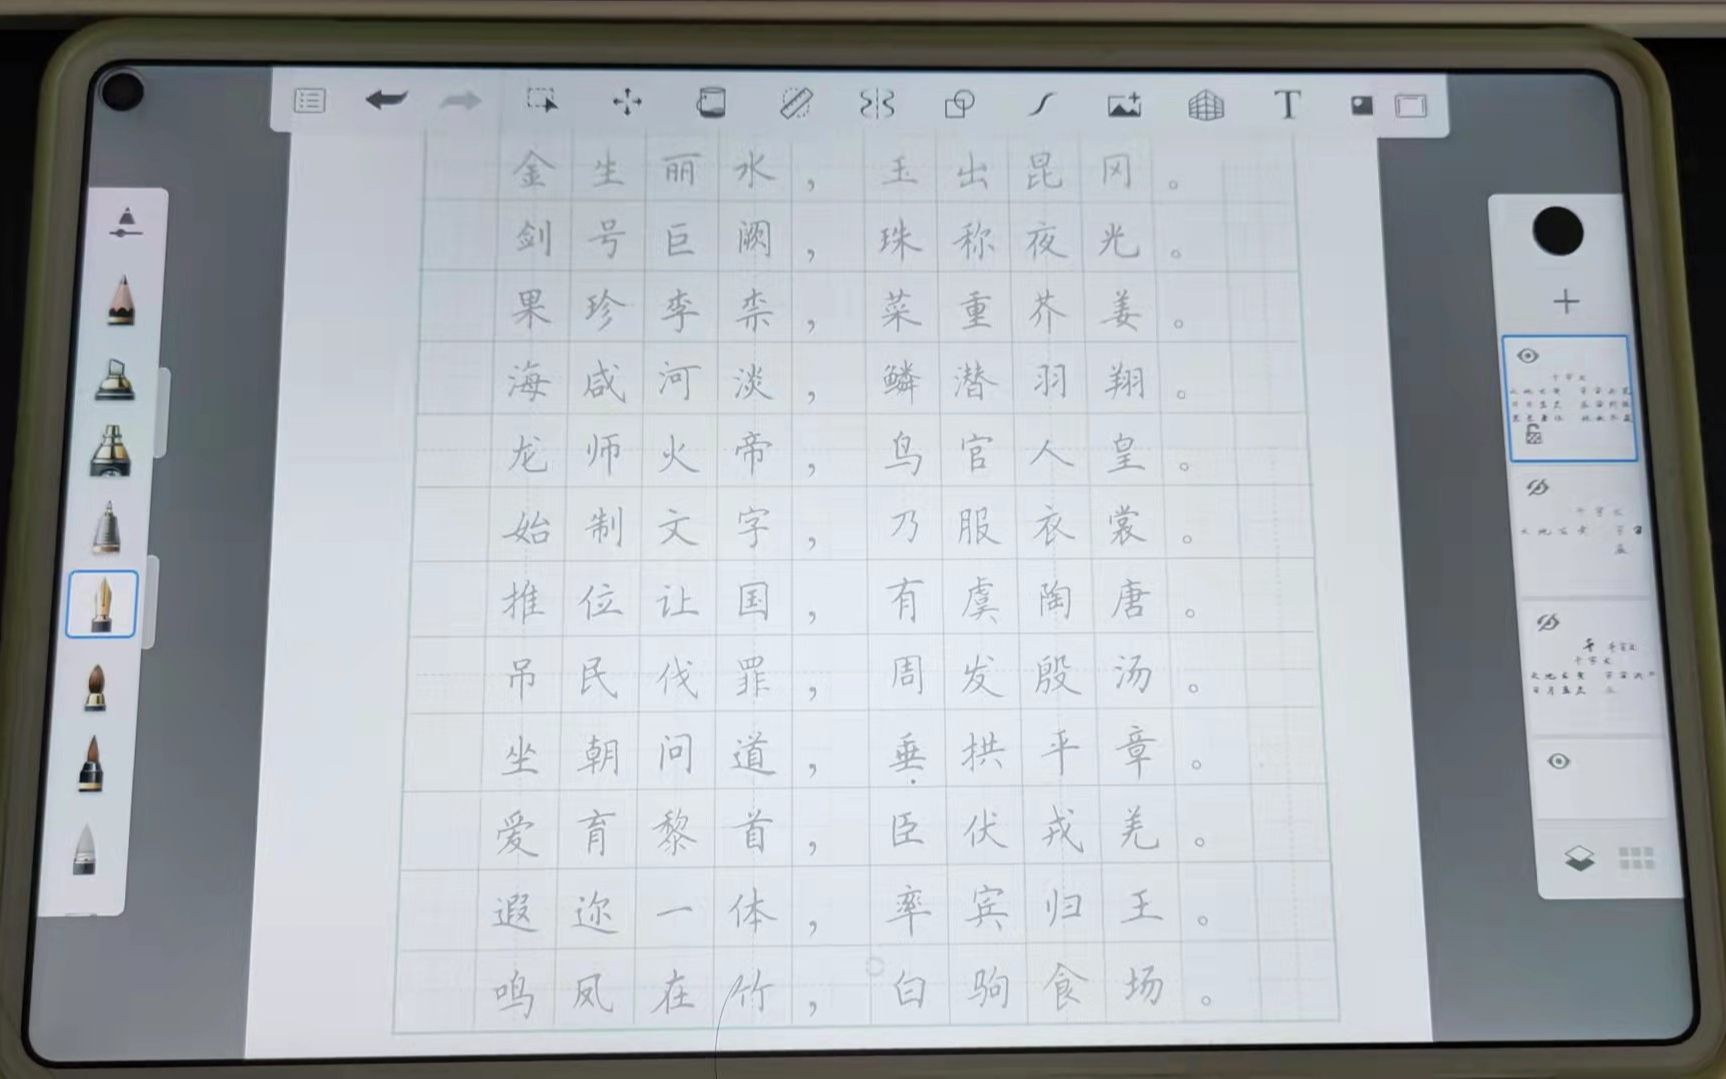 金生丽水，玉出昆冈。
剑号巨阙，珠称夜光。
果珍李柰，菜重芥姜。
海咸河淡，鳞潜羽翔。
龙师火帝，鸟官人皇。
始制文字，乃服衣裳。
推位让国，有虞陶唐。
吊民伐罪，周发殷汤。
坐朝问道，垂拱平章。
爱育黎首，臣伏戎羌。
遐迩一体，率宾归王。
鸣凤在竹，白驹食场。
T